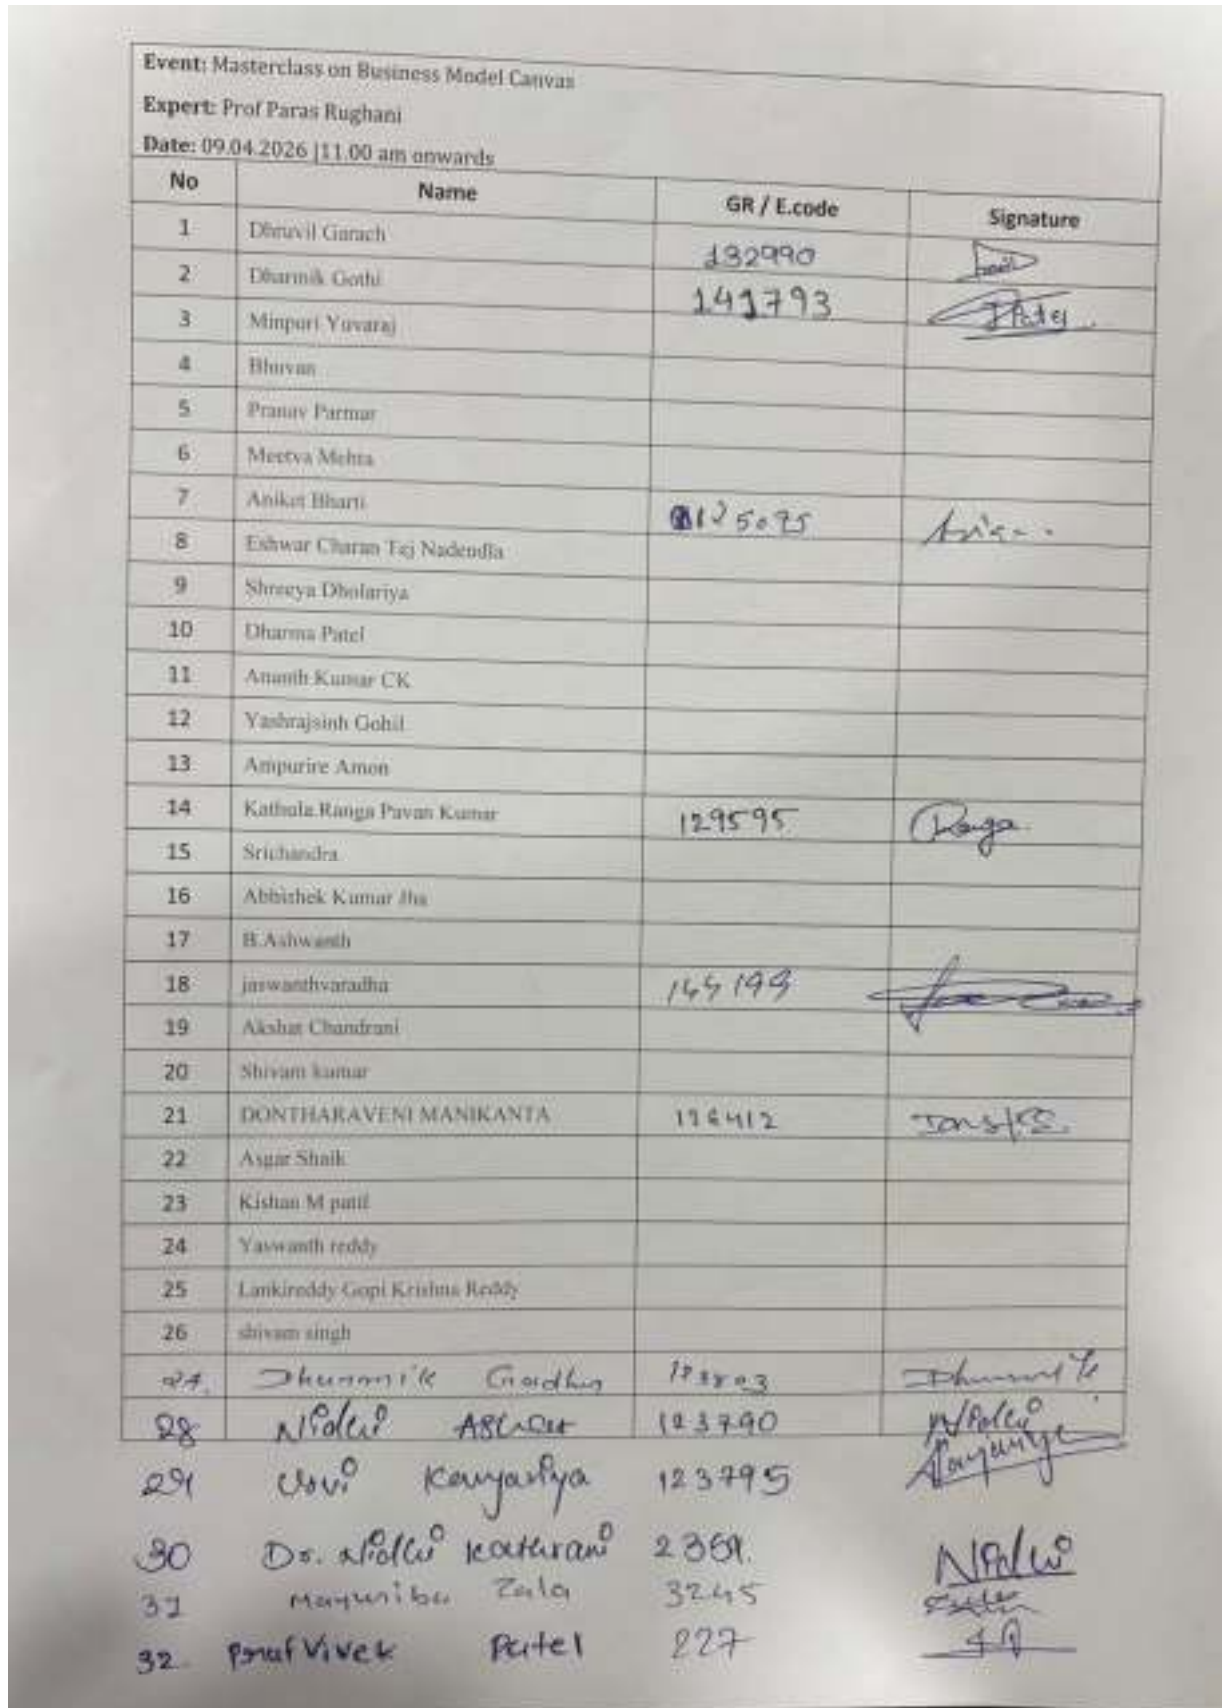 Event: Masterclass on Business Model Canvas
Expert: Prof Paras Rughani
Date: 09.04.2026 |11.00 am onwards
No Name GR / E.code Signature
1 Dhruvil Garach 132990
2 Dharmik Gothi 141793 JPatel
3 Minpuri Yuvaraj
4 Bhuvan
5 Pranav Parmar
6 Meetva Mehta
7 Aniket Bharti 125075
8 Eshwar Charan Tej Nadendla
9 Shreeya Dholariya
10 Dharma Patel
11 Ananth Kumar CK
12 Yashrajsinh Gohil
13 Ampurire Amon
14 Kathula.Ranga Pavan Kumar 129595 Ranga
15 Srichandra
16 Abhishek Kumar Jha
17 B.Ashwanth
18 jaswanthvaradha
19 Akshat Chandrani
20 Shivam kumar
21 DONTHARAVENI MANIKANTA 126412
22 Asgar Shaik
23 Kishan M patil
24 Yaswanth reddy
25 Lankireddy Gopi Krishna Reddy
26 shivam singh
27.
28 Nidhi 123790 Nidhi
29 Urvi 123795
30 Dr. Nidhi Kathrani Nidhi
31 Mayuriba Zala 3245
32. Prof Vivek Patel 227